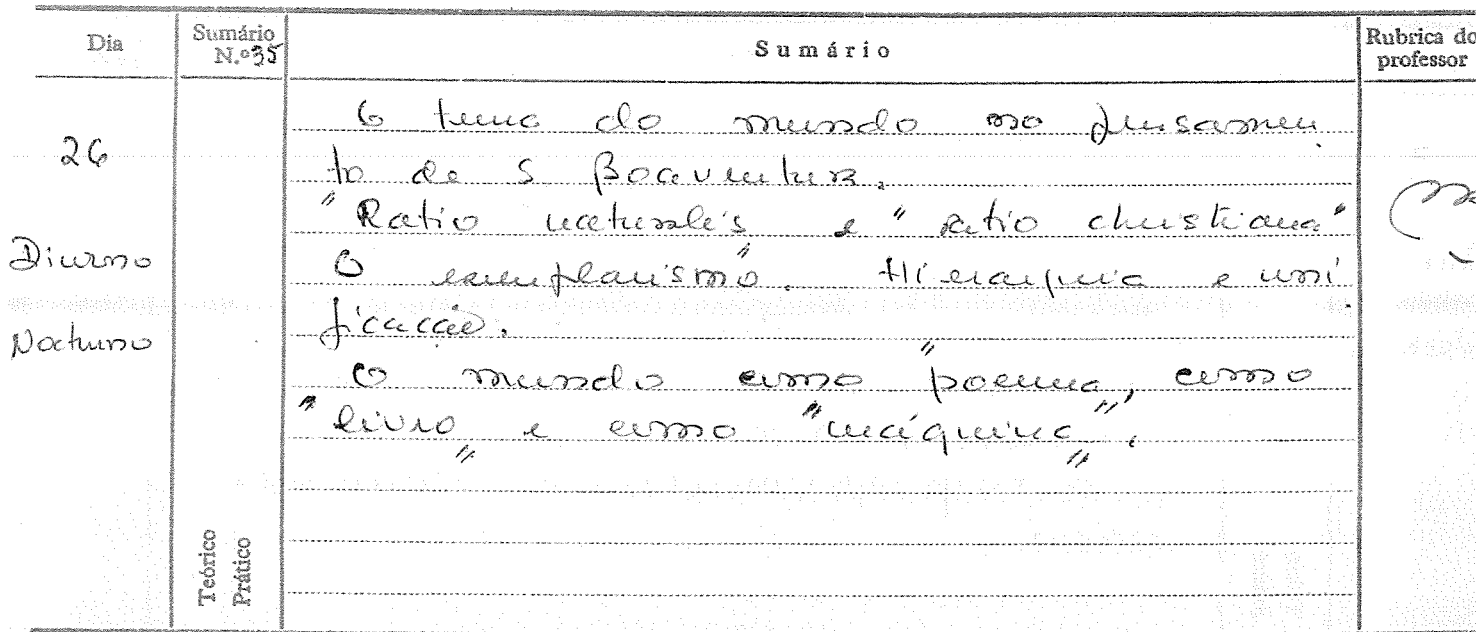 Dia
Sumário
N.º 35
Sumário
Rubrica do
professor
26
Diurno
Nocturno
O tema do mundo no pensamen
to de S Boaventura.
"Ratio naturalis" e "ratio christiana"
O exemplarismo. Hierarquia e uni
ficação.
O mundo como "poema", como
"livro" e como "máquina".
Teórico
Prático